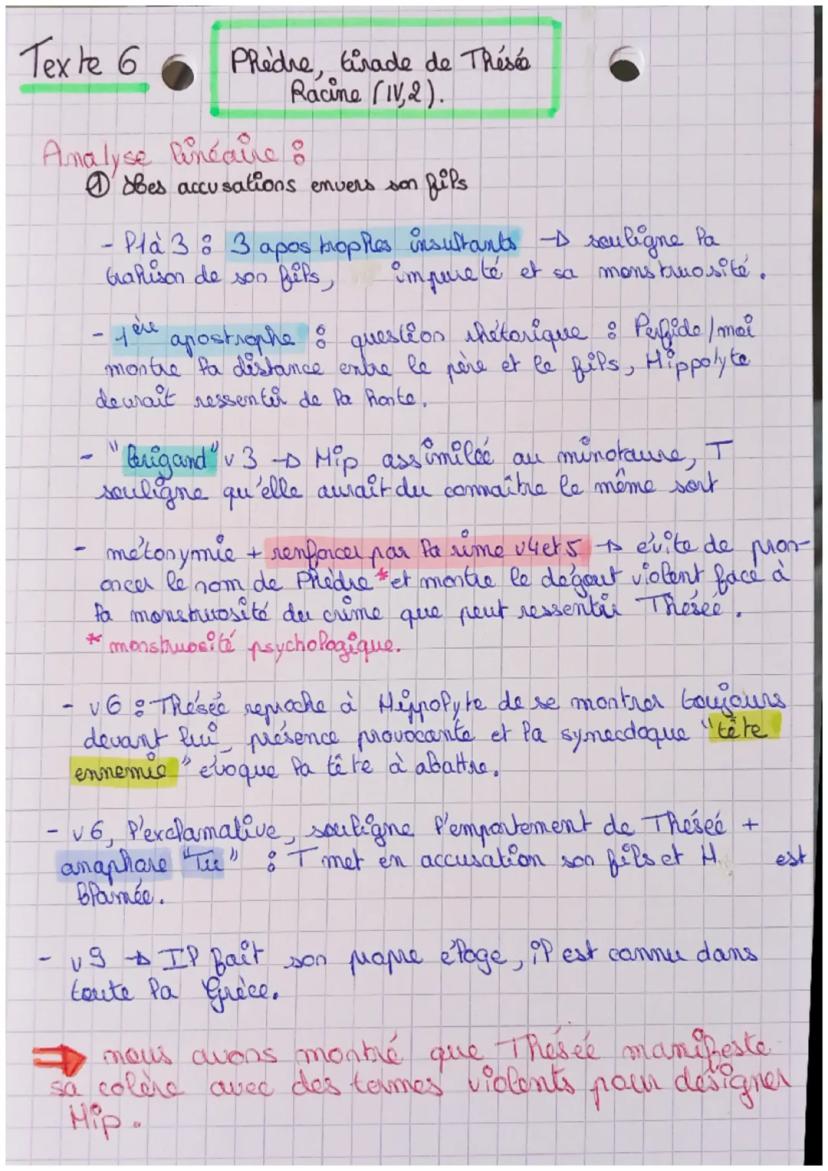 Texte 6
Phèdre, tirade de Thésé
Racine (IV,2).
Analyse linéaire :
① Des accusations envers son fils
- l1 à 3 : 3 apostrophes insultants → souligne la
trahison de son fils, impureté et sa monstruosité.
- 1ère apostrophe : question rhétorique : Perfide/moi
montre la distance entre le père et le fils, Hippolyte
devrait ressentir de la honte.
- "Brigand" v 3 → Hip assimilée au minotaure, T
souligne qu'elle aurait du connaître le même sort
- métonymie + renforcer par la rime v4 et 5 → évite de pron-
oncer le nom de Phèdre * et montre le dégout violent face à
la monstruosité du crime que peut ressentir Théseé.
* monstruosité psychologique.
- v6 : Théseé reproche à Hippolyte de se montrer toujours
devant lui, présence provocante et la synecdoque "tête
ennemie" évoque la tête à abattre.
- v6, l'exclamative, souligne l'emportement de Théseé +
anaphore "Tu" : T met en accusation son fils et H. est
blamée.
- v9 → Il fait son propre éloge, il est connu dans
toute la Grèce.
⇒ nous avons montré que Théseé manifeste
sa colère avec des termes violents pour désigner
Hip.